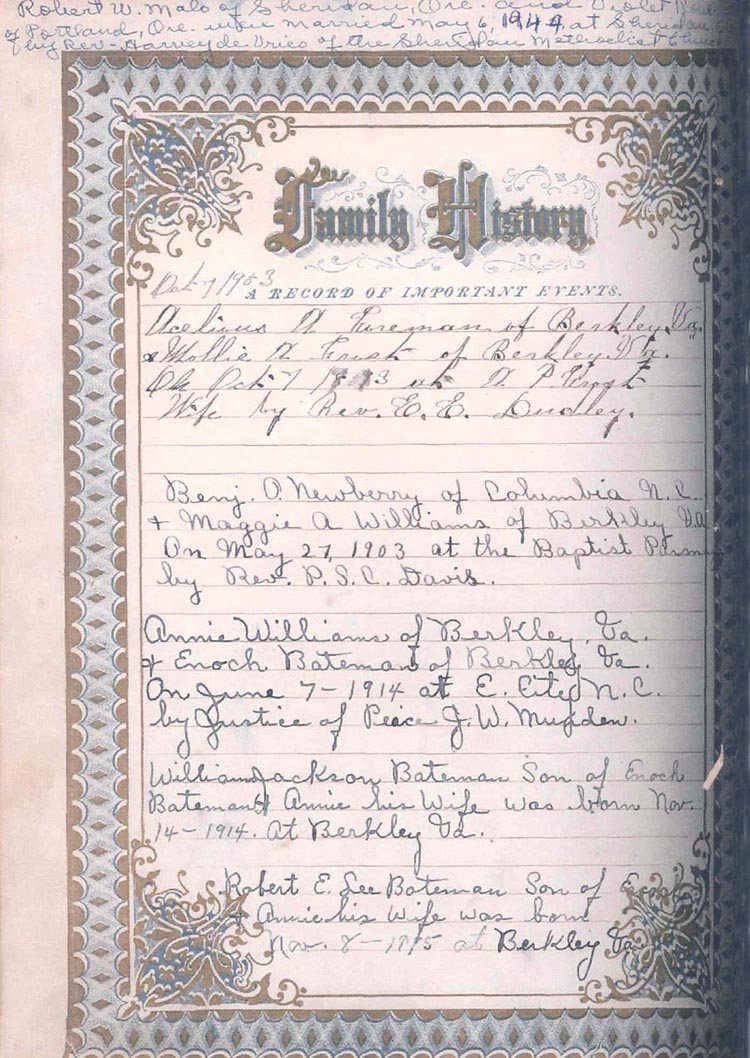 Robert W. Malo of Sheridan, Ore. and Violet
of Portland, Ore. were married May 6, 1944, at Sheridan
by Rev. Harvey de Vries of the Sheridan Methodist
Family History.
Oct 7 1903
A RECORD OF IMPORTANT EVENTS.
A. Foreman of Berkley, Va.
& Mollie A Frost of Berkley, Va.
On Oct 7 1903 at A P Frost
Wife by Rev. E. E. Dudley.
Benj. O. Newberry of Columbia N. C.
+ Maggie A Williams of Berkley Va
On May 27, 1903 at the Baptist
by Rev. P. S. C. Davis.
Annie Williams of Berkley, Va.
+ Enoch Bateman of Berkley Va.
On June 7 - 1914 at E. City N. C.
by Justice of Peace J. W. Munden.
William Jackson Bateman Son of Enoch
Bateman & Annie his Wife was born Nov.
14 - 1914. At Berkley Va.
Robert E. Lee Bateman Son of Enoch
+ Annie his Wife was born
Nov. 8 - 1915 at Berkley Va.